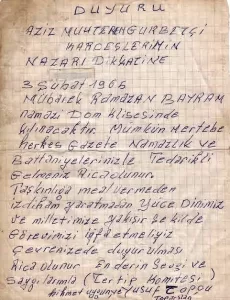 DUYURU
AZİZ MUHTEREM GURBETÇİ
KARDEŞLERİMİN
NAZARI DİKKATİNE
3 Şubat 1965
Mübarek Ramazan BAYRAM
namazı Dom Klisesinde
kılınacaktır. Mümkün Mertebe
herkes Gazete Namazlık ve
Battaniyelerinizle Tedarikli
Gelmeniz Rica olunur.
Taşkınlığa meal vermeden
izdiham yaratmadan Yüce Dinimiz
ve milletimize yakışır şekilde
Görevimizi ifa etmeliyiz
Çevrenizede duyurulması
Rica olunur. En derin Sevgi ve
Saygılarımla (Tertip Komitesi)
Yusuf Topçu